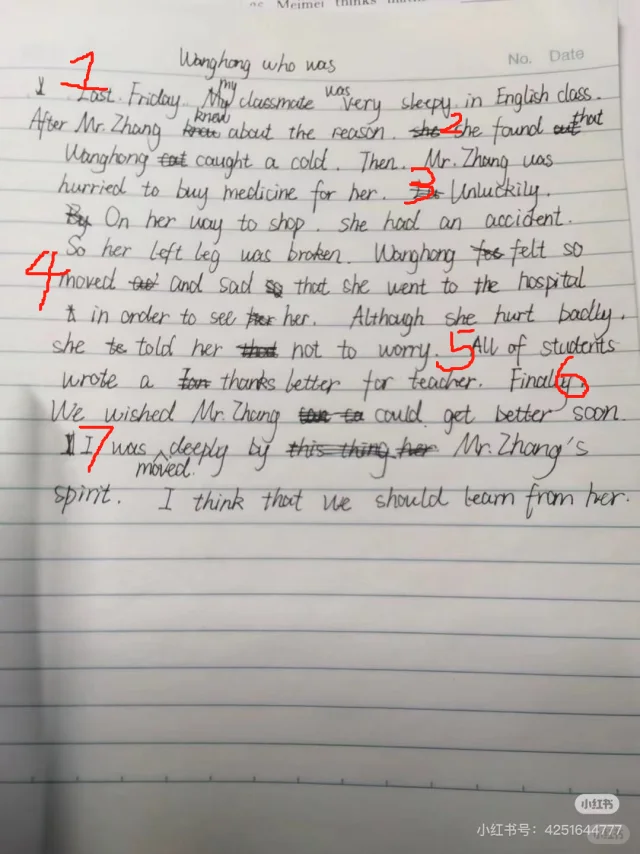 as Meimei thinks
No. Date
Wanghong who was
1
Last Friday. My my classmate was very sleepy in English class.
After Mr. Zhang knew knew about the reason. she 2 she found out that
Wanghong cat caught a cold. Then. Mr. Zhang was
hurried to buy medicine for her. 3 Unluckily.
By On her way to shop. she had an accident.
So her left leg was broken. Wanghong felt so
4 moved and sad so that she went to the hospital
in order to see her her. Although she hurt badly.
she te told her that not to worry. 5 All of students
wrote a thanks better for teacher. Finally. 6
We wished Mr. Zhang could get better soon
I 7 was moved. deeply by this thing her Mr. Zhang's
spirit. I think that we should learn from her.
小红书
小红书号：4251644777
小红书